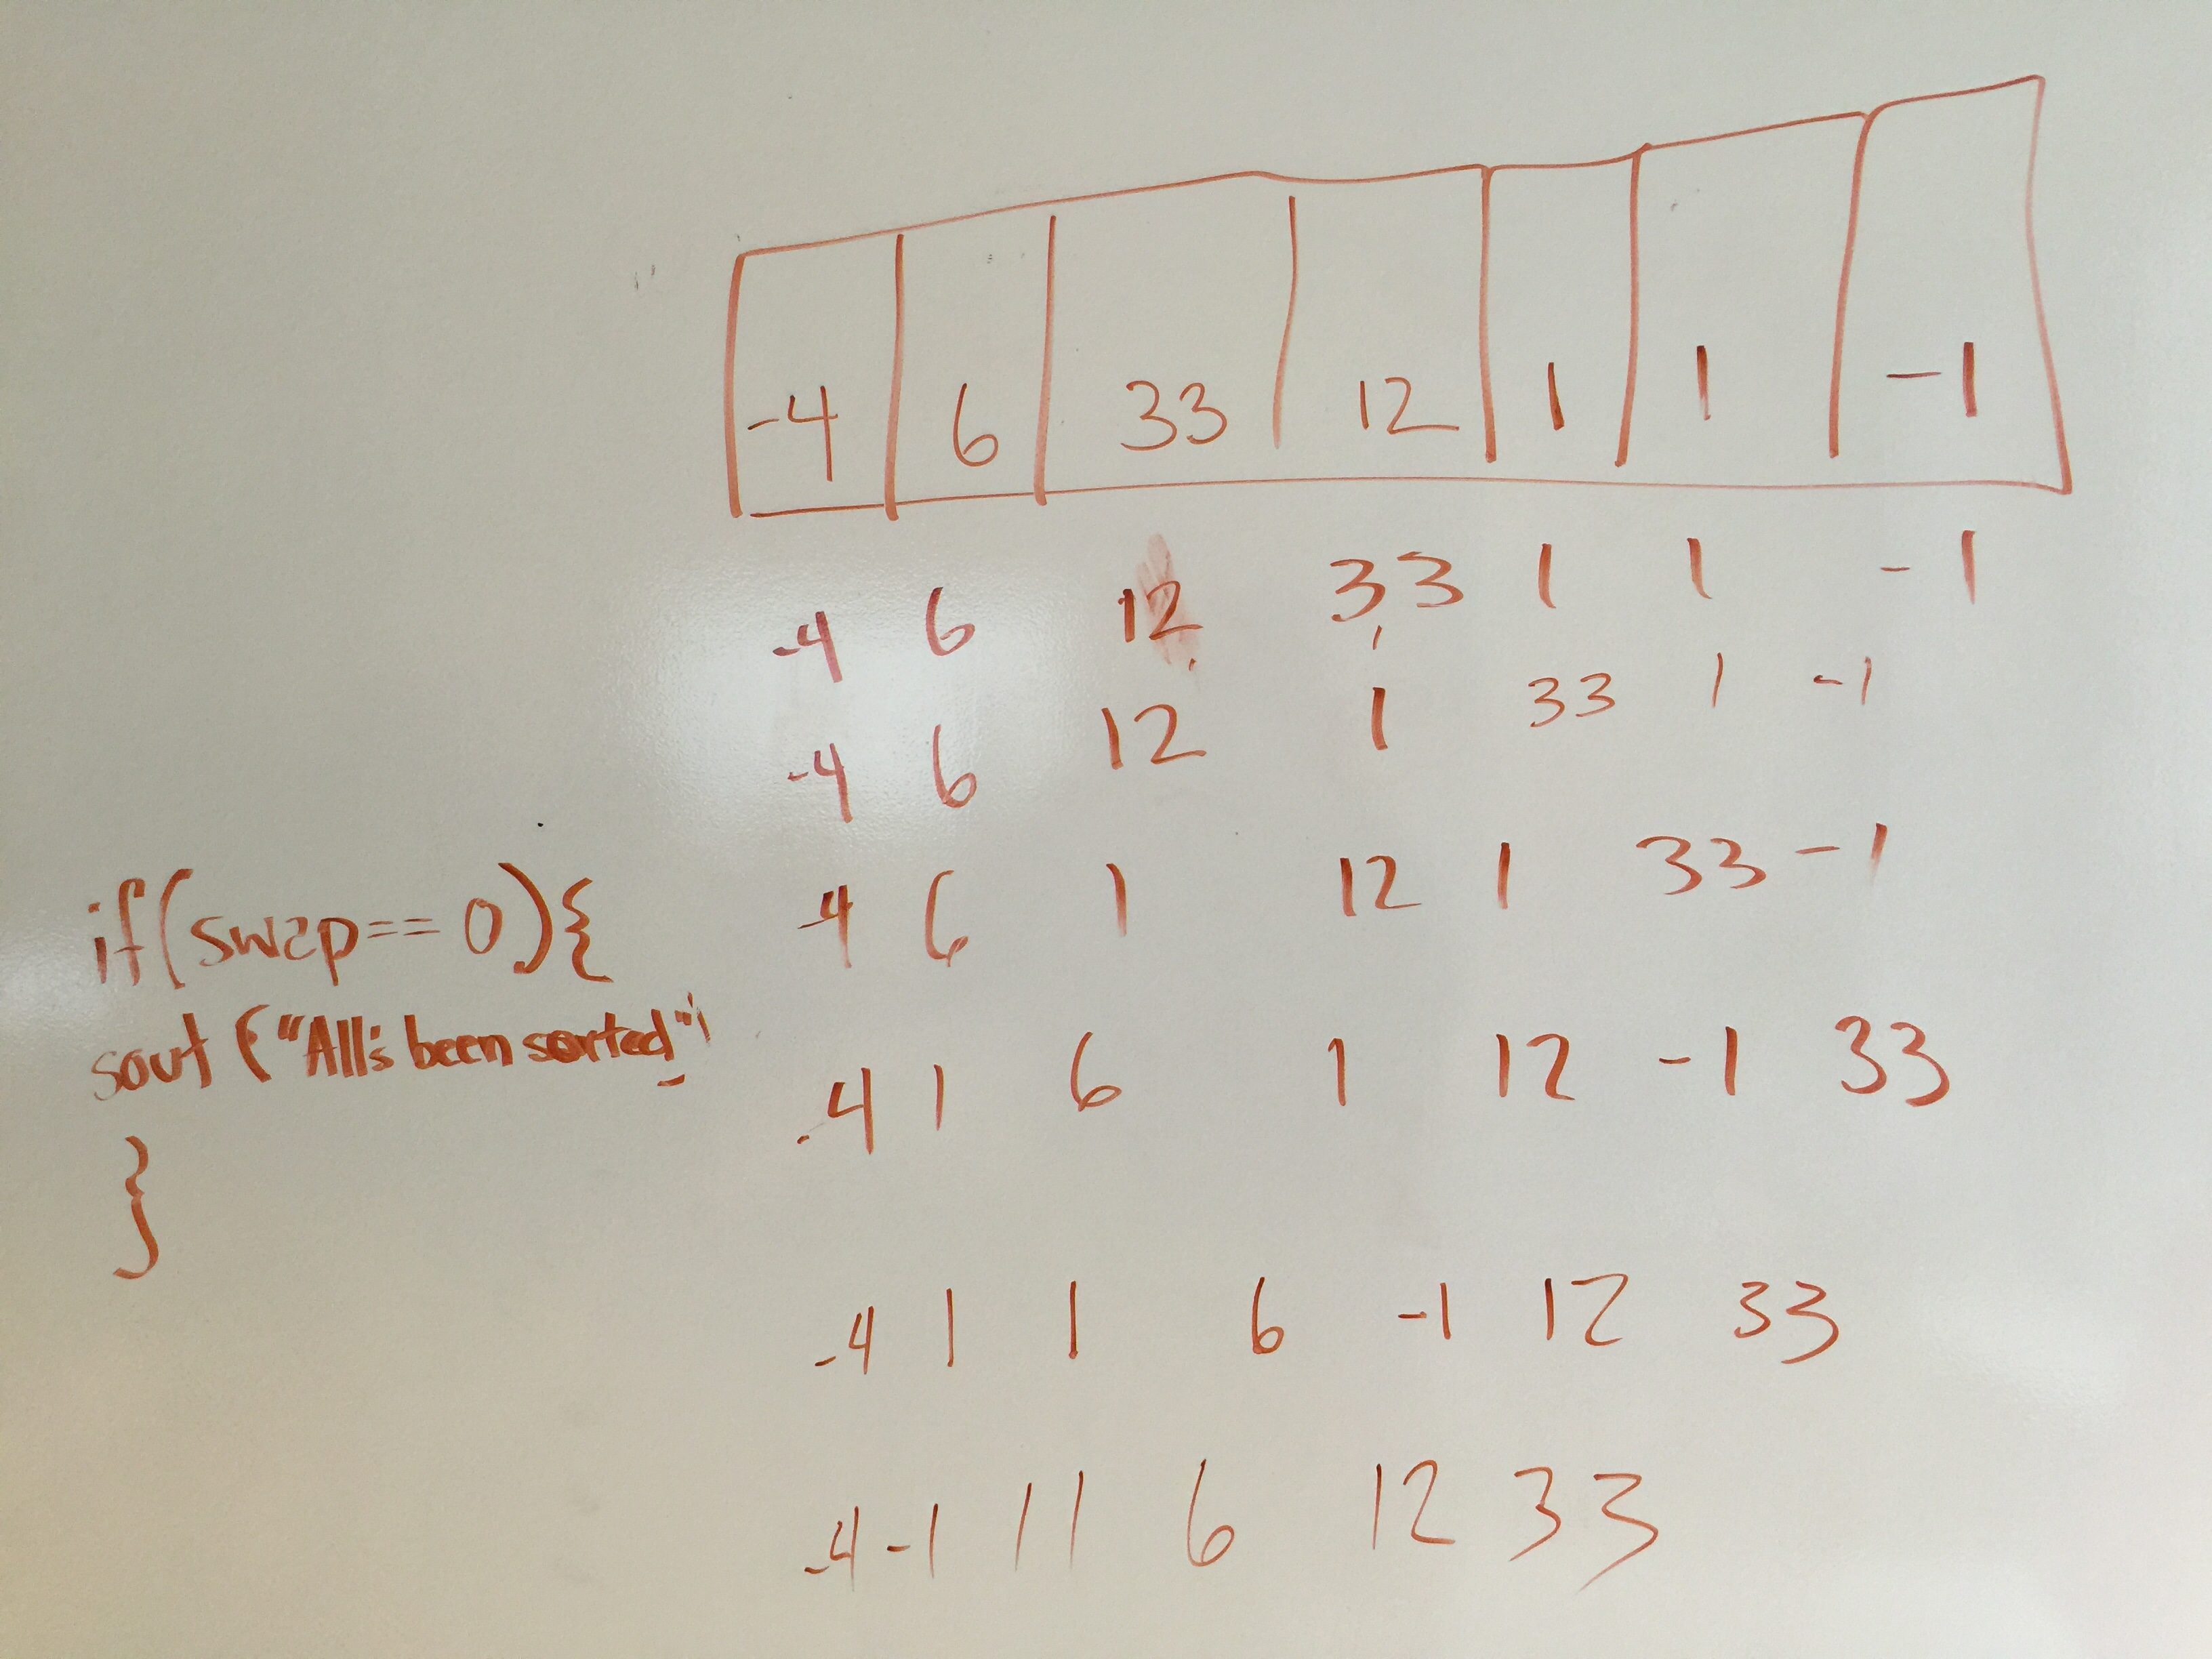 -4 6 33 12 1 1 -1
-4 6 12 33 1 1 -1
-4 6 12 1 33 1 -1
-4 6 1 12 1 33 -1
-4 1 6 1 12 -1 33
-4 1 1 6 -1 12 33
-4 -1 1 1 6 12 33
if(swap== 0){
sout ("All's been sorted")
}